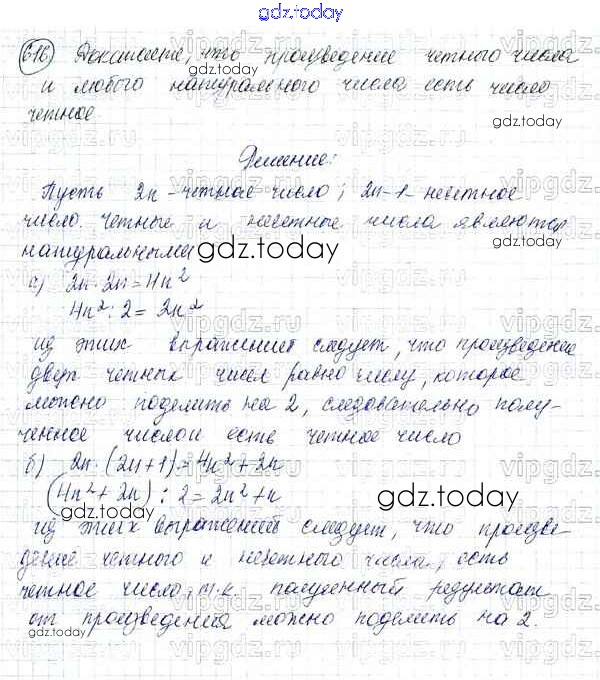 gdz.today
616) Докажите, что произведение четного числа
и любого натурального числа есть число
четное.
gdz.today
gdz.today
Решение:
Пусть 2n - четное число; 2n-1 - нечетное
число. Четные и нечетные числа являются
натуральными
gdz.today
а) 2n · 2n = 4n²
4n² : 2 = 2n²
из этих выражений следует, что произведение
двух четных чисел равно числу, которое
можно поделить на 2, следовательно полу-
ченное числом есть четное число
б) 2n · (2n+1) = 4n² + 2n
(4n² + 2n) : 2 = 2n² + n
gdz.today
gdz.today
из этих выражений следует, что произве-
дение четного и нечетного числа, есть
четное число, т.к. полученный результат
от произведения можно поделить на 2.
gdz.today
vipgdz.ru